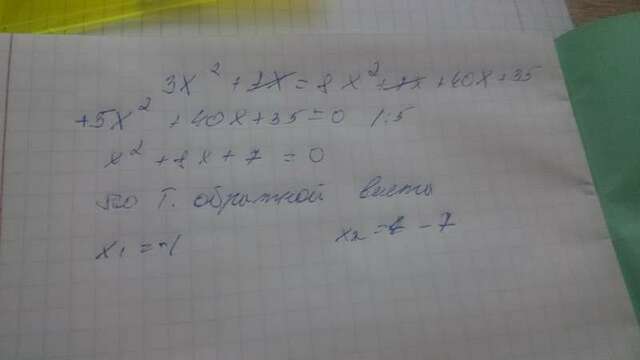 3x² + 7x = 8x² + 7x + 40x + 35
+5x² + 40x + 35 = 0 /:5
x² + 8x + 7 = 0
по Т. обратной Виеты
x₁ = -1 x₂ = -7